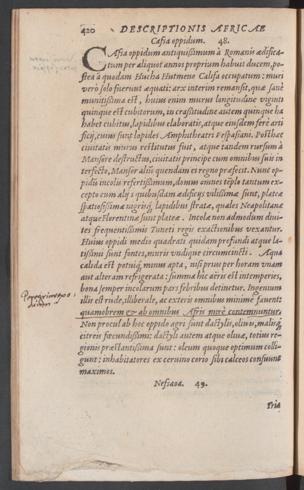 420 DESCRIPTIONIS AFRICAE
Casfa oppidum. 48.
CAsfa oppidum antiquissimum à Romanis ædifica-
tum per aliquot annos proprium habuit ducem, po-
stea à quodam Hucba Hutmeno Califa occupatum: muri
verò solo fuerunt æquati: arx interim remansit, quæ sanè
munitissima est, huius enim murus longitudine viginti
quinque est cubitorum, in crassitudine autem quinque ha
habet cubitus, lapidibus elaboratis, atque eiusdem ferè arti
ficij, cuius sunt lapides Amphitheatri Vespasiani. Posthac
ciuitatis murus restitutus fuit, atque tandem rursum à
Mansore destructus, ciuitatis principe cum omnibus suis in
terfecto, Mansor alium quendam ei regno præfecit. Nunc op-
pidum incolis refertissimum, domus omnes tẽplo tantum ex-
cepto cum alijs quibusdam ædificijs vilissimæ sunt, plateæ
spatiosissimæ nigrisq́; lapidibus stratæ, quales Neapolitanæ
atque Florentinæ sunt plateæ. Incolæ non admodum diui-
tes frequentissimis Tuneti regis exactionibus vexantur.
Huius oppidi medio quadrati quidam profundi atque la-
tissimi sunt fontes, muris vndique circumcincti. Aqua
calida est potuiq́; minus apta, nisi prius per horam vnam
aut alteram refrigerata: summa hic aëris est intemperies,
bona semper incolarum pars febribus detinetur. Ingenium
illis est rude, illiberale, ac exteris omnibus minimè fauent
quamobrem & ab omnibus Afris mirè contemnuntur.
Non procul ab hoc oppido agri sunt dactylis, oliuis, malisq́;
citreis fœcundissimi: dactyli autem atque oliuæ, totius re-
gionis præstantissimæ sunt: oleum quoque optimum colli-
gunt: inhabitatores ex ceruino corio sibi calceos consuunt
maximos.
Nefsaoa. 49.
Tria